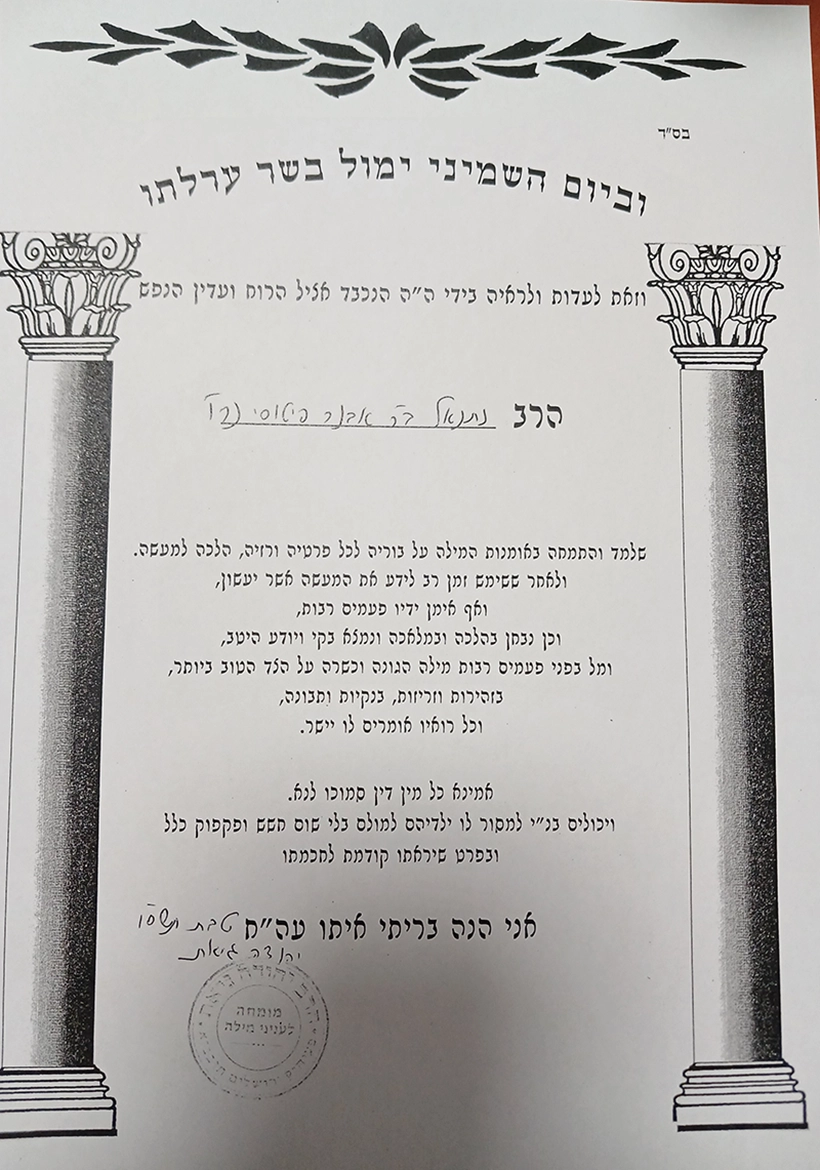 בס"ד
וביום השמיני ימול בשר ערלתו
וזאת לעדות ולראיה בידי ה"ה הנכבד אציל הרוח ועדין הנפש
הרב נתנאל בר אבנר פיטוסי נרו
שלמד והתמחה באומנות המילה על בוריה לכל פרטיה ורזיה, הלכה למעשה.
ולאחר ששימש זמן רב לידע את המעשה אשר יעשון,
ואף אימן ידיו פעמים רבות,
וכן נבחן בהלכה ובמלאכה ונמצא בקי ויודע היטב,
ומל בפני פעמים רבות מילה הגונה וכשרה על הצד הטוב ביותר,
בזהירות וזריזות, בנקיות ותבונה,
וכל רואיו אומרים לו יישר.
אמינא כל מין דין סמוכו לנא.
ויכולים בנ"י למסור לו ילדיהם למולם בלי שום חשש ופקפוק כלל
ובפרט שיראתו קודמת לחכמתו
אני הנה בריתי איתו עה"ח טבת תשס"ו
יהודה גיאת
הרב יהודה גיאת
מומחה
לעניני מילה
ירושלים